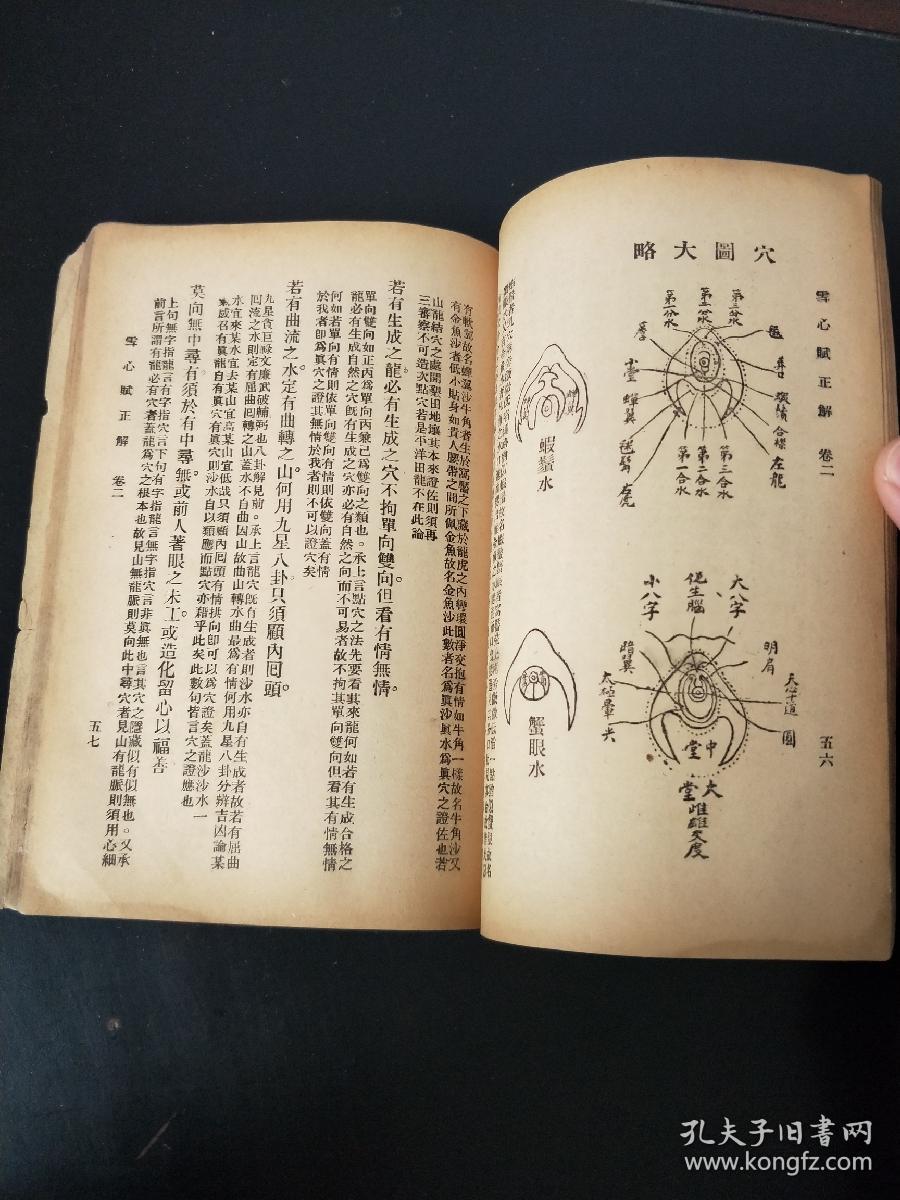 雪心賦正解 卷二
五六
穴圖大略
第三分水
第二分水
第一分水
蟬翼
左龍
第三合水
第二合水
第一合水
大八字
小八字
明肩
暗翼
太極暈
圓
中堂
大堂
雌雄交度
蝦鬚水
蟹眼水
有軟翼故名蟬翼沙牛角者生於窩鉗之下藏於龍虎之內彎環圓淨交抱有情如牛角一樣故名牛角沙又
有金魚沙者低小貼身如貴人腰帶之間所佩金魚故名金魚沙此數者名爲眞沙眞水爲眞穴之證佐也若
山龍結穴之處開墾田地壤其本來證佐則須再
三審察不可造次點穴若是平洋田龍不在此論
若有生成之龍必有生成之穴不拘單向雙向。但看有情無情。
單向雙向如正丙爲單向丙兼巳爲雙向之類也。承上言點穴之法先要看其來龍何如若有生成合格之
龍必有生成自然之穴旣有生成之穴亦必有自然之向而不可易者故不拘其單向雙向但看其有情無情
何如若單向有情則依單向雙向有情則依雙向蓋有情
於我者卽爲眞穴之證其無情於我者則不可以證穴矣
若有曲流之水定有曲轉之山何用九星八卦只須顧內囘頭。
九星貪巨祿文廉武破輔弼也八卦解見前。承上言龍穴旣有生成者則沙水亦自有生成者故若有屈曲
囘流之水則定有屈曲囘轉之山蓋水不自曲因山故曲山轉水曲最爲有情何用九星八卦分辨吉凶論某
水宜來某水宜去某山宜高某山宜低哉只須顧內囘頭有情拱向卽可以爲穴證矣蓋龍沙沙水一
氣感召有眞龍自有眞穴則沙水自以類應而點穴亦藉乎此矣此數句皆言穴之證應也
莫向無中尋有須於有中尋無。或前人著眼之未工。或造化留心以福善
上句無字指龍言有字指穴言下句有字指龍言無字指穴言非眞無也言其穴之隱藏似有似無也。又承
前言所謂有龍必有穴者蓋龍爲穴之根本也故見山無龍脈則莫向此中尋穴者見山有龍脈則須用心細
雪心賦正解 卷二
五七
孔夫子旧书网
www.kongfz.com